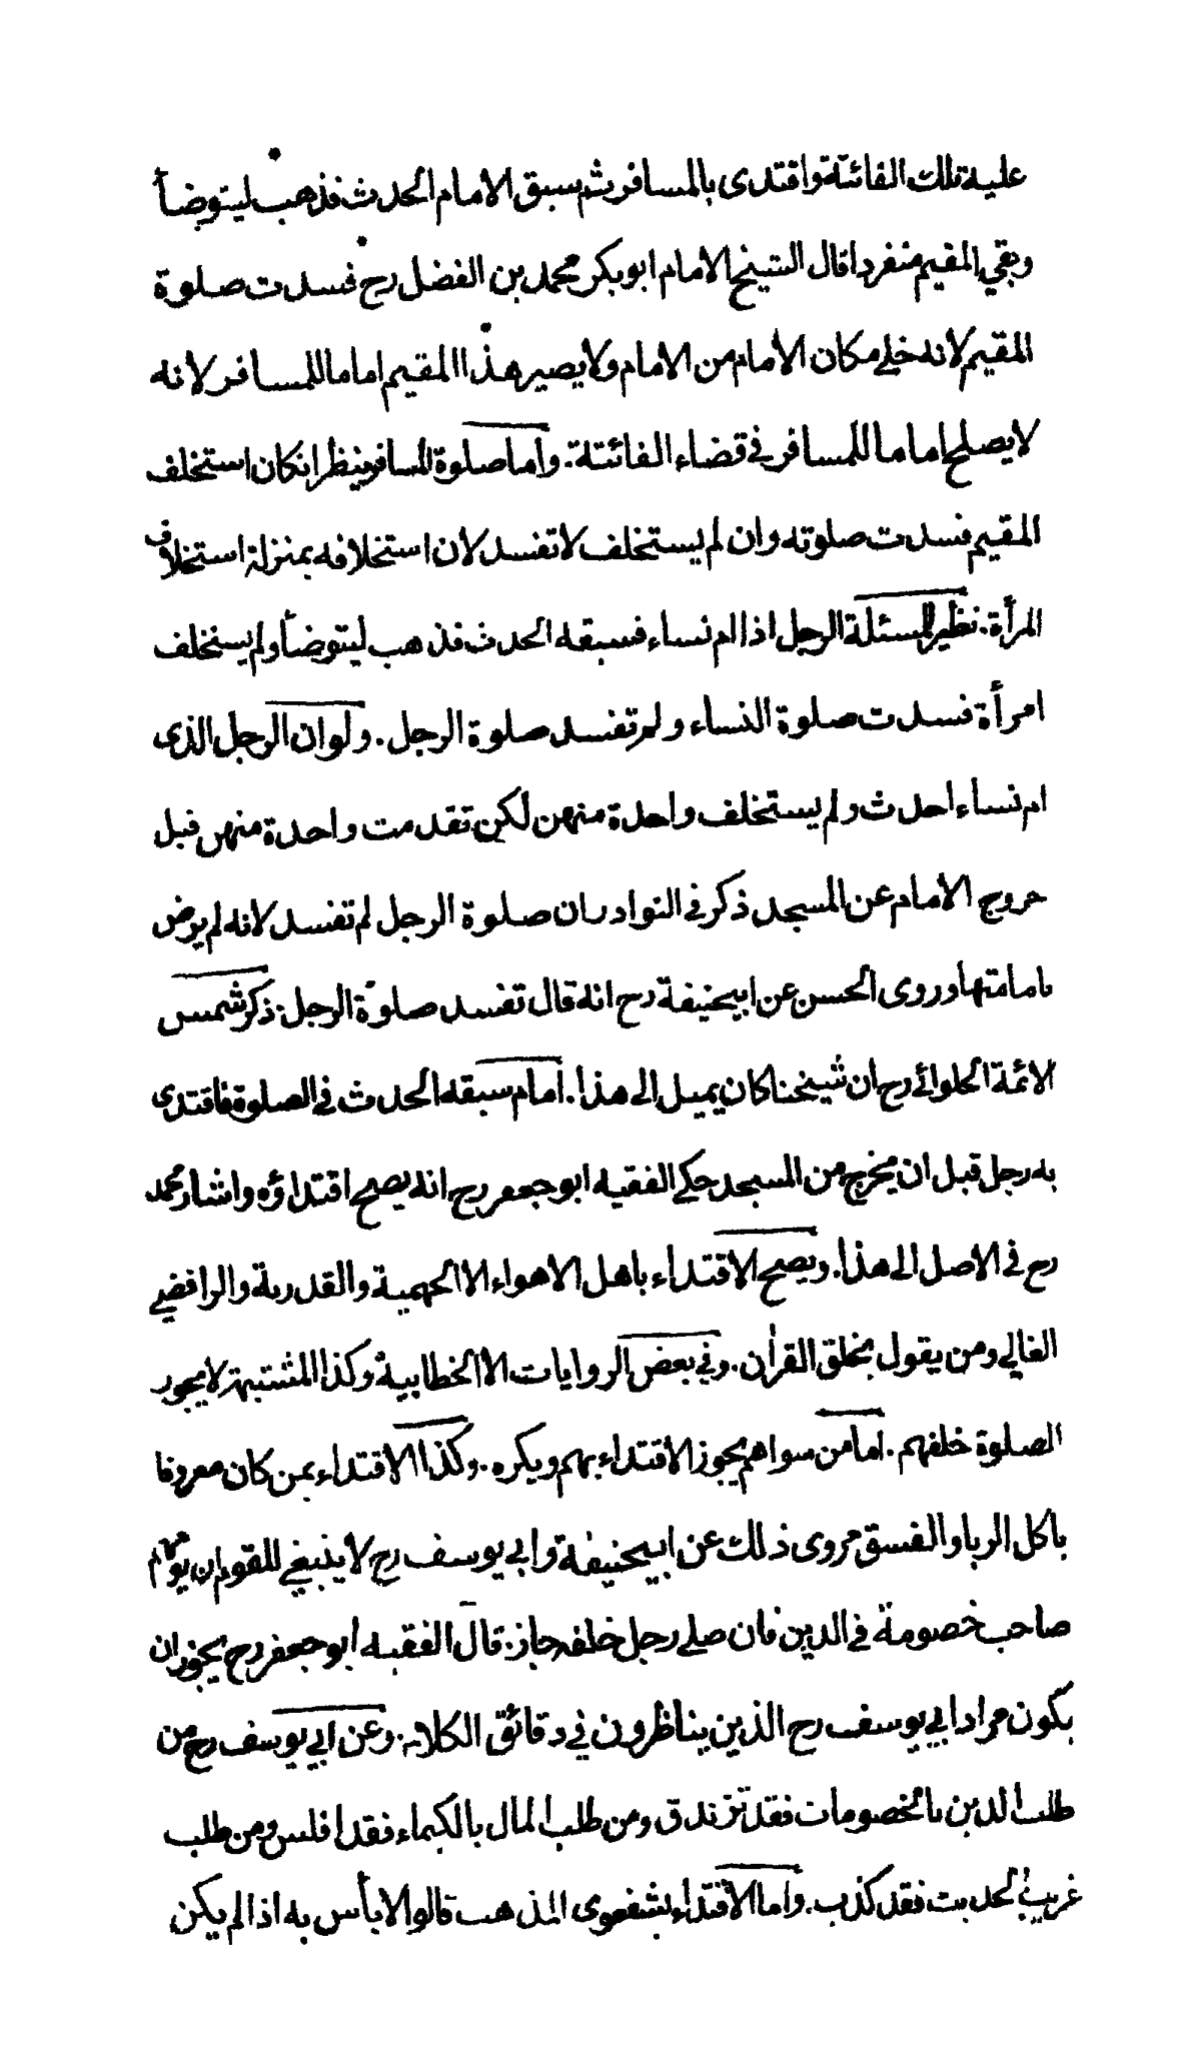 عليه تلك الفائتة واقتدى بالمسافر ثم سبق الامام الحدث فذهب ليتوضأ
وبقي المقيم منفردا قال الشيخ الامام ابو بكر محمد بن الفضل رح فسدت صلوة
المقيم لانه خلي مكان الامام من الامام ولا يصير هذا المقيم اماما للمسافر لانه
لا يصلح اماما للمسافر في قضاء الفائتة. واما صلوة المسافر ينظر انكان استخلف
المقيم فسدت صلوته وان لم يستخلف لا تفسد لان استخلافه بمنزلة استخلاف
المرأة. نظير المسئلة الرجل اذا ام نساء فسبقه الحدث فذهب ليتوضأ ولم يستخلف
امرأة فسدت صلوة النساء ولم تفسد صلوة الرجل. ولو ان الرجل الذى
ام نساء احدث ولم يستخلف واحدة منهن لكن تقدمت واحدة منهن قبل
خروج الامام عن المسجد ذكر في النوادر ان صلوة الرجل لم تفسد لانه لم يرض
بامامتها وروى الحسن عن ابيحنيفة رح انه قال تفسد صلوة الرجل. ذكر شمس
الائمة الحلوائي رح ان شيخنا كان يميل الى هذا. امام سبقه الحدث في الصلوة فاقتدى
به رجل قبل ان يخرج من المسجد حكي الفقيه ابو جعفر رح انه يصح اقتداؤه واشار محمد
رح في الاصل الى هذا. ويصح الاقتداء باهل الاهواء الا الجهمية والقدرية والرافضي
الغالي ومن يقول بخلق القرأن. وفي بعض الروايات الا الخطابية وكذا المشتبهة لا يجوز
الصلوة خلفهم. اما من سواهم يجوز الاقتداء بهم ويكره. وكذا الاقتداء بمن كان معروفا
باكل الربا والفسق مروى ذلك عن ابيحنيفة وابي يوسف رح لا ينبغي للقوم ان يؤمهم
صاحب خصومة في الدين فان صلى رجل خلفه جاز. قال الفقيه ابو جعفر رح يجوز ان
يكون مراد ابي يوسف رح الذين يناظرون في دقائق الكلام. وعن ابي يوسف رح من
طلب الدين بالخصومات فقد تزندق ومن طلب المال بالكيماء فقد افلس ومن طلب
غريب الحديث فقد كذب. واما الاقتداء بشفعوى المذهب قالوا لا بأس به اذا لم يكن